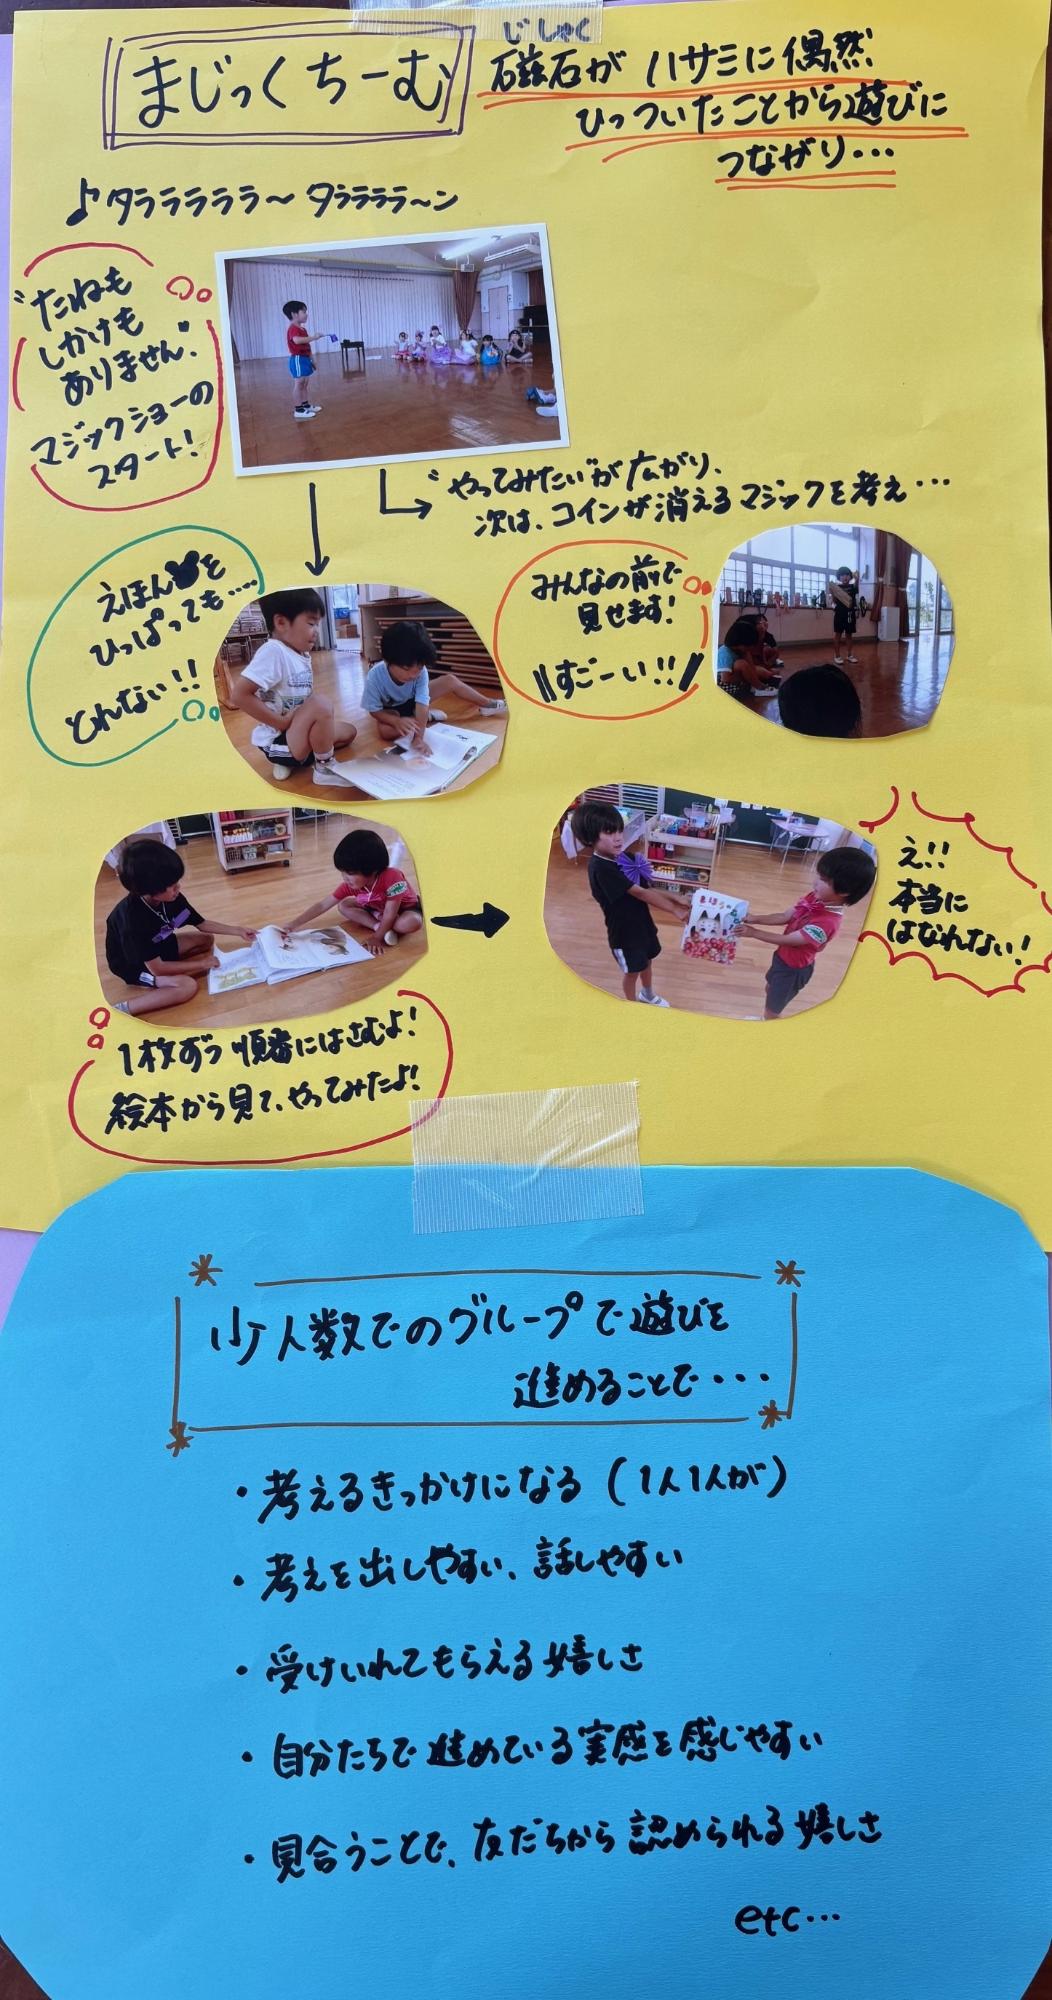 まじっくちーむ
じしゃく
磁石が ハサミに偶然
ひっついたことから遊びに
つながり・・・
♪タララララ～ タラララ～ン
"たねも
しかけも
ありません。"
マジックショーの
スタート!
"やってみたい"が広がり、
次は、コインが消えるマジックを考え・・・
えほんを
ひっぱっても・・・・
とれない!!
みんなの前で
見せます!
すごーい!!
え!!
本当に
はなれない!
1枚ずつ順番にはさむよ!
絵本から見て、やってみたよ!
少人数でのグループで遊びを
進めることで・・・
・考えるきっかけになる(1人1人が)
・考えを出しやすい、話しやすい
・受けいれてもらえる嬉しさ
・自分たちで進めている実感を感じやすい
・見合うことで、友だちから認められる嬉しさ
etc・・・